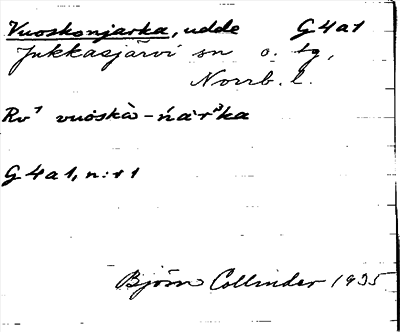 Vuoskonjarka, udde G4a1
Jukkasjärvi sn o. tg,
Norrb. l.
Rv¹ vuoskà-ńar̀ka
G4a1, n:r 1
Björn Collinder 1935